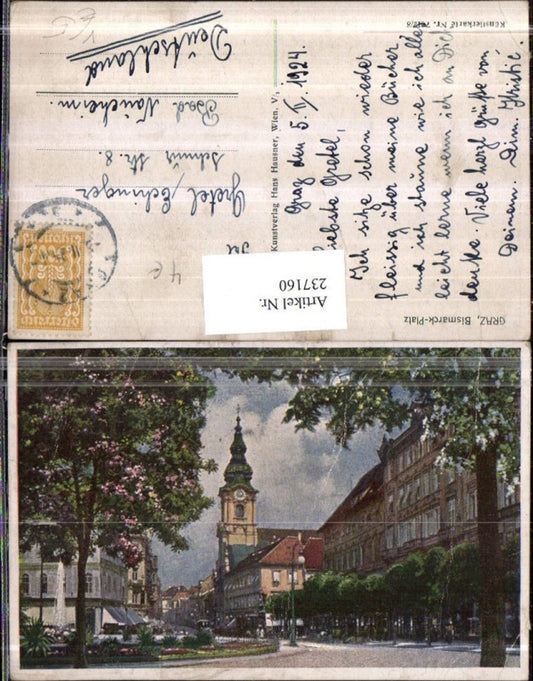 Künstlerkarte Nr. 7017/8
Kunstverlag Hans Hausner, Wien. V.
GRAZ, Bismarck-Platz
Graz den 5. V. 1924.
Liebste Gretel,
Ich sitze schon wieder
fleissig über meine Bücher
und ich staune wie ich alles
leicht lerne wenn ich an Dich
denke. Viele herzl. Grüße von
Deinem. Dim. Christić.
Gretel Echinger
Schnur Str. 8.
Bad Nauheim.
Deutschland
4€
Artikel Nr.
237160